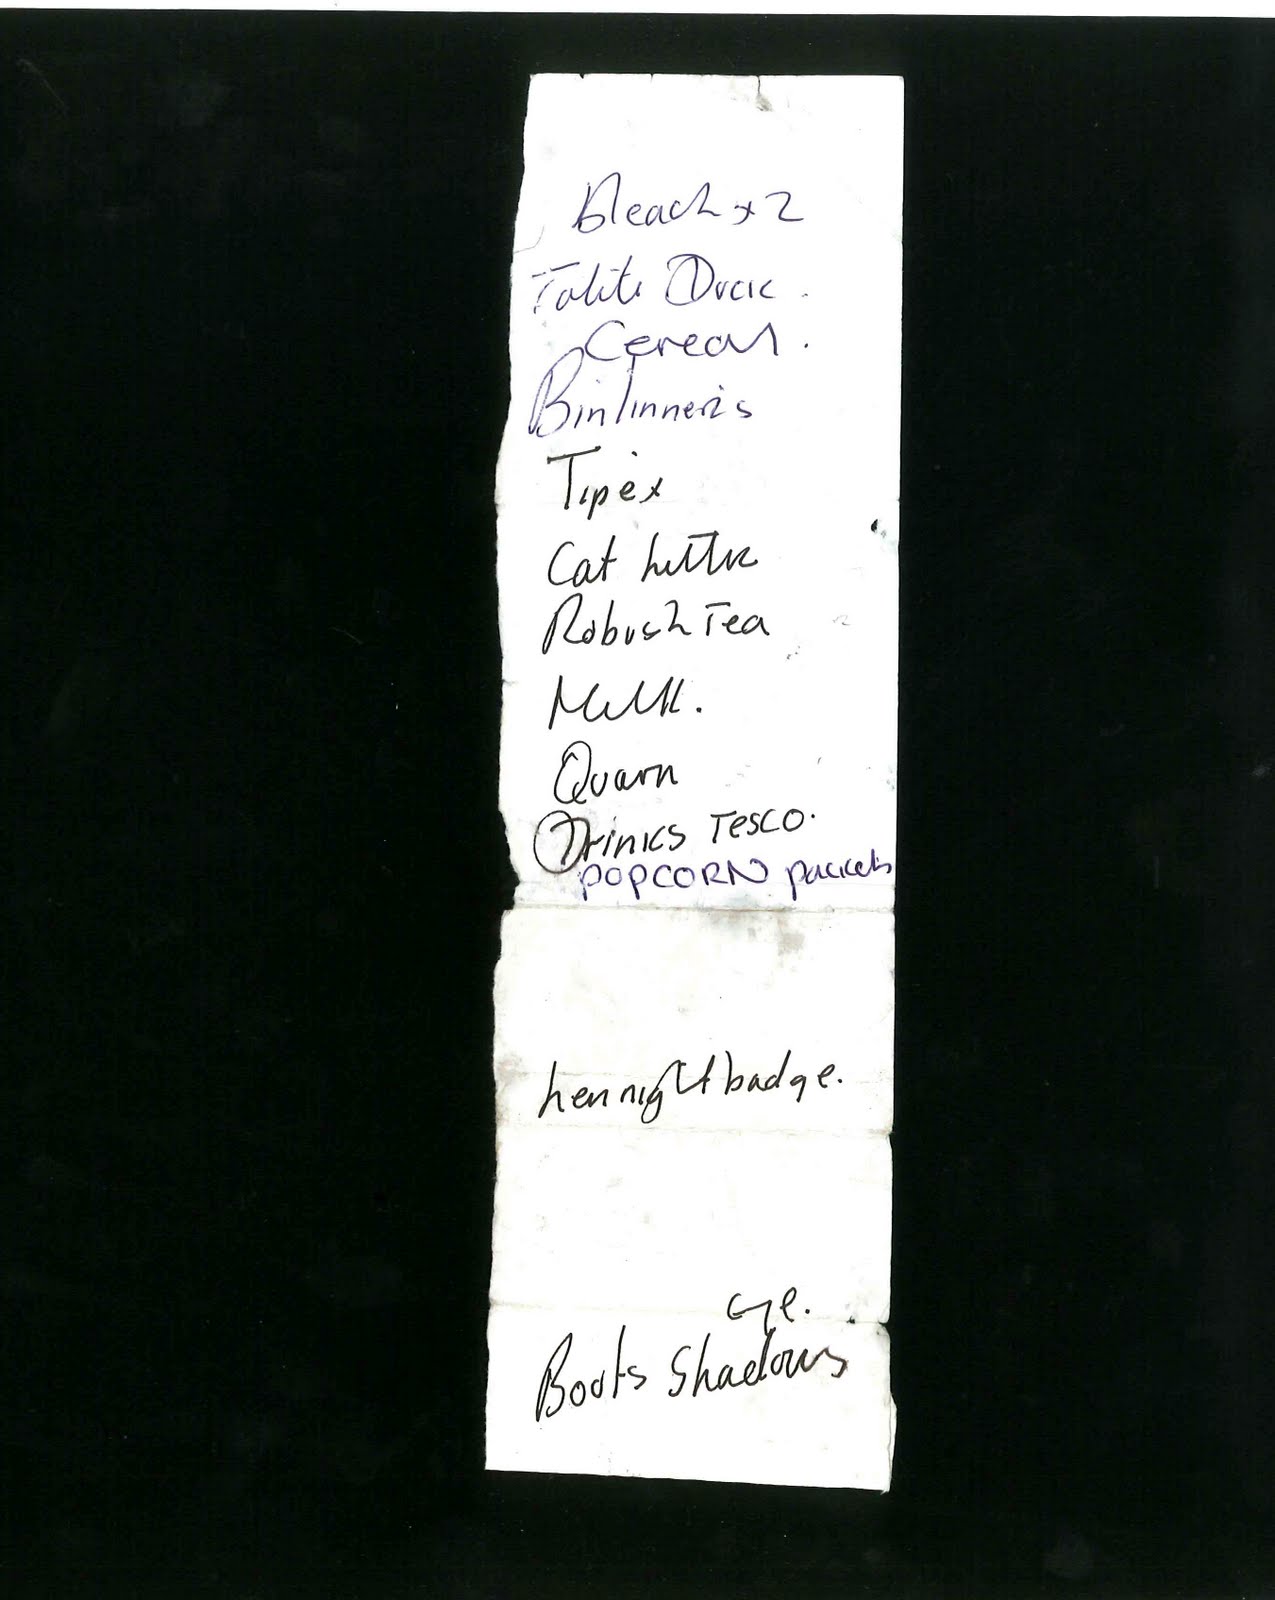 Bleach x 2
Tolite Duck.
Cereal.
Binlinners
Tipex
Cat litter
Robush Tea
Milk.
Quorn
Drinks Tesco.
POPCORN packets
hen night badge.
eye.
Boots Shadows